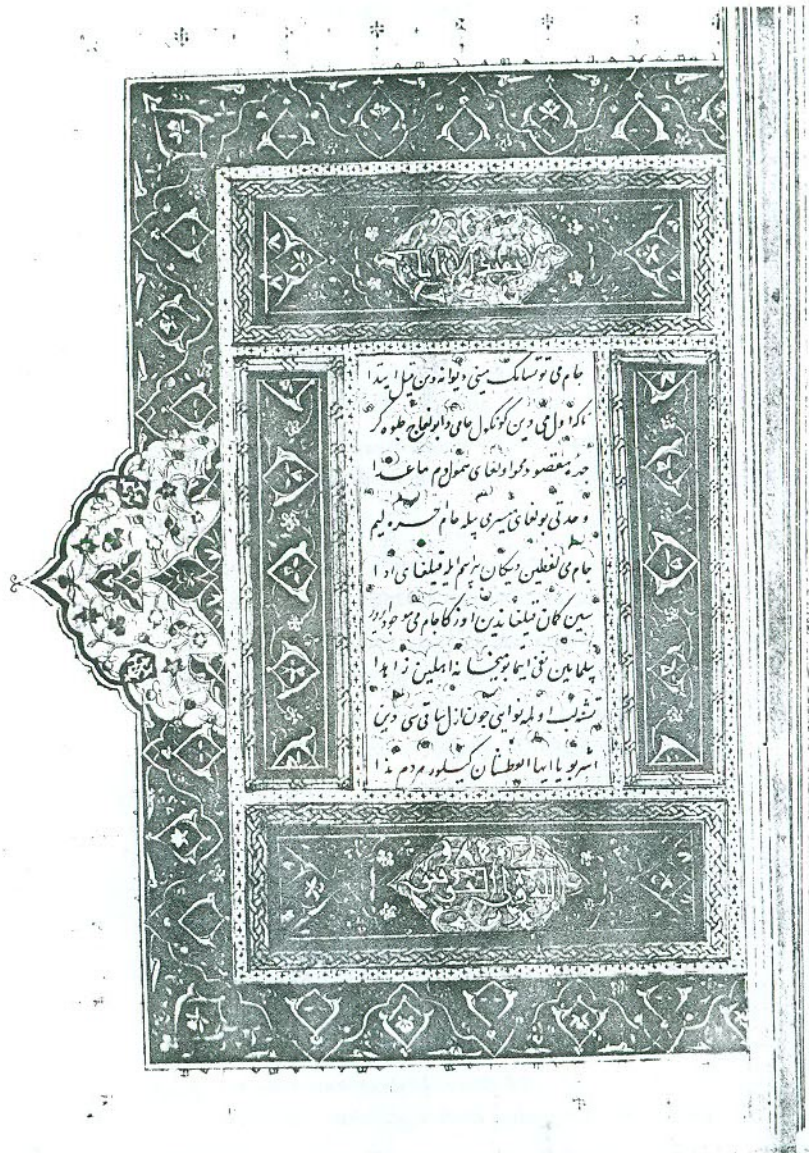 جام می توتسانک مینی دیوانه دین قیل ابتدا
تاکه اول می دین کونکول جامی دا بولغاچ جلوه کر
چهره مقصود محو اولغای همول دم ماعدا
وحدتی بولغای میسر می بیله جام ایچره کیم
جام می لفظین دیکان بر اسم ایله قیلغای ادا
سین کمان قیلغاندین اوزکا جام می موجود ایرور
بیلماین نفی ایتما بو میخانه اهلین زاهدا
تشنه لب اولمه نوایی چون ازل ساقی سی دین
اشربو یا ایها العطشان کیلور هردم ندا